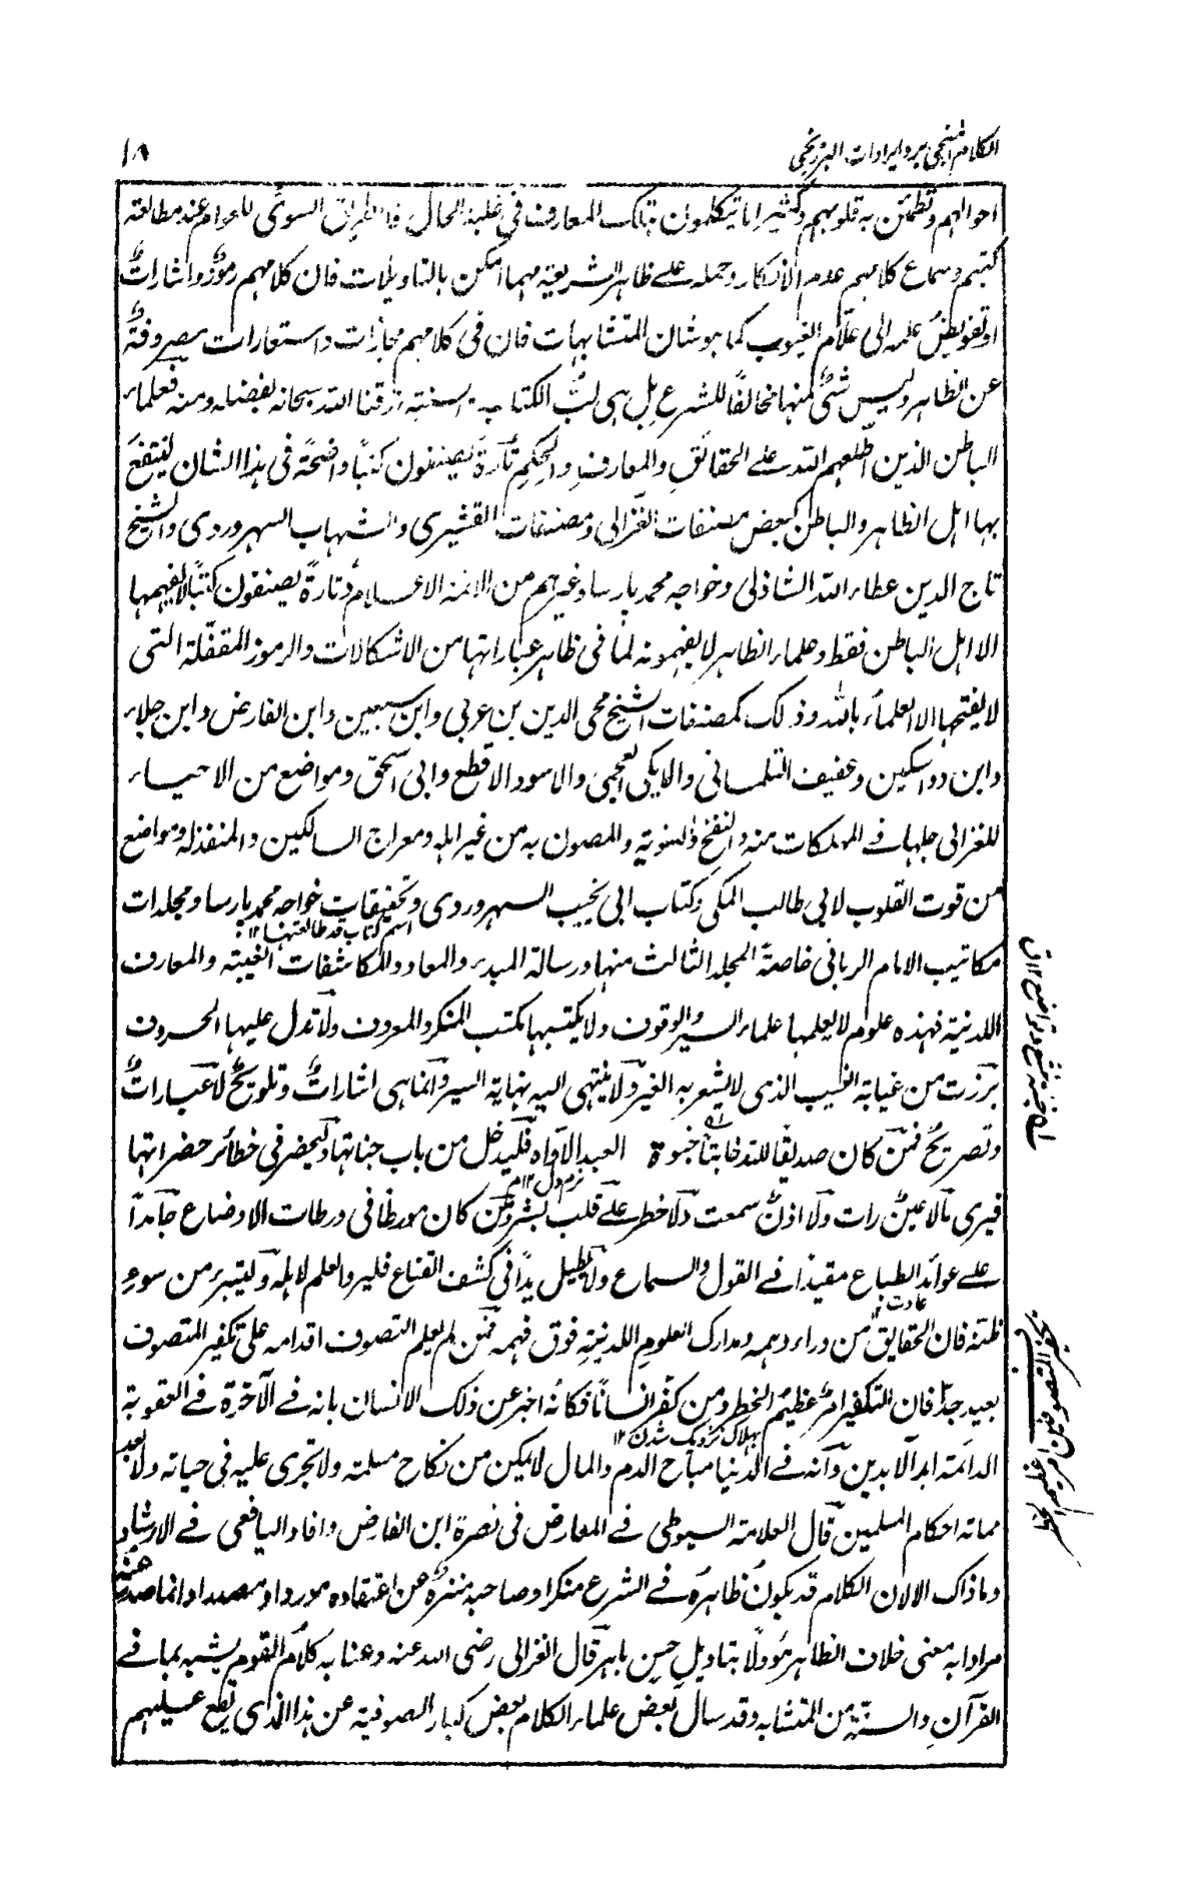 الكلام المنجى برد ايرادات البرزنجى
١٨
احوالهم وتطمئن به قلوبهم وكثيرا ما يتكلمون بتلك المعارف فى غلبة الحال فالطريق السوىّ للعوام عند مطالعة
كتبهم وسماع كلامهم عدم الانكار وحمله على ظاهر الشريعة مهما امكن بالتاويلات فان كلامهم رموزٌ واشاراتٌ
او تفويضُ علمه الى علّام الغيوب كما هو شان المتشابهات فان فى كلامهم مجازات واستعارات مصروفةٌ
عن الظاهر وليس شئٌ منها مخالفًا للشرع بل هى لبّ الكتاب والسنة رزقنا الله سبحانه بفضله ومنه فعلماء
الباطن الذين اطلعهم الله على الحقائقِ والمعارفِ والحِكَمِ تارةً يصنفون كتبًا واضحةً فى هذا الشان لينتفعَ
بها اهل الظاهر والباطن كبعض مصنفات الغزّالى ومصنفات القشيرى والشهاب السهروردى والشيخ
تاج الدين عطاء الله الشاذلى وخواجه محمد پارسا وغيرهم من الائمة الاعلام وتارةً يصنفون كتبًا لا يفهمها
الا اهل الباطن فقط وعلماء الظاهر لا يفهمونه لما فى ظاهر عباراتها من الاشكالات والرموز المقفّلة التى
لا يفتحها الا العلماء بالله وذلك كمصنفات الشيخ محى الدين بن عربى وابن سبعين وابن الفارض وابن جلاء
وابن دواسكين وعفيف التلمسانى والايكى العجمى والاسود الاقطع وابى اسحق ومواضع من الاحياء
للغزالى جلها فى المهلكات منه والنفخ والتسوية والمضنون به من غير اهله ومعراج السالكين والمنقذ له ومواضع
من قوت القلوب لابى طالب المكى وكتاب ابى نجيب السهروردى وتحقيقات خواجه محمد پارسا ومجلدات
اسم كتاب قد طالعتها ١٢
مكاتيب الامام الربانى خاصةً المجلد الثالث منها ورسالة المبدء والمعاد والمكاشفات الغيبية والمعارف
اللدنية فهذه علوم لا يعلمها علماء السير والوقوف ولا يكتبها مكتب المنكر والمعروف ولا تدل عليها الحروف
برزت من غيابة الغيب الذى لا يشعر به الغير ولا ينتهى اليه نهاية السير وانما هى اشاراتٌ وتلويحٌ لا عباراتٌ
وتصريحٌ فمن كان صديقًا لله قانتًا خبوة العبد الاوّاه فليدخل من باب جناتها وليحضر فى خطائر حضراتها
نرم دل ١٢ م
فيرى ما لا عينٌ رات ولا اذنٌ سمعت ولا خطر على قلب بشر ومن كان مورطًا فى ورطات الاوضاع جامدًا
على عوائد الطباع مقيدًا فى القول والسماع ولا يطيل يدًا فى كشف القناع فليرد العلم لاهله وليتبرء من سوء
عادت ١٢
ظنه فان الحقايق من وراء وهمه ومدارك العلوم اللدنية فوق فهمه فمن لم يعلم التصوف اقدامه على تكفير المتصوف
بعيد جدًا فان التكفير امرٌ عظيم الخطر ومن كفّر انسانًا فكانه اخبر عن ذلك الانسان بانه فى الآخرة فى العقوبة
بهلاك نزديك شدن ١٢
الدائمة ابد الآبدين وانه فى الدنيا مباح الدم والمال لا يمكن من نكاح مسلمة ولا تجرى عليه فى حياته ولا بعد
مماته احكام المسلمين قال العلامة السيوطى فى المعارض فى نصرة ابن الفارض وافاد اليافعى فى الارشاد
وما ذاك الا لان الكلام قد يكون ظاهره فى الشرع منكرا وصاحبه منزهٌ عن اعتقاده موردا ومصدرا وانما صدر عنه
مرادا به معنى خلاف الظاهر مؤولًا بتاويل حسن باهر قال الغزالى رضى الله عنه وعنا به كلام القوم يشبه بما فى
القرآن والسنة من المتشابه وقد سال بعض علماء الكلام بعض كبار الصوفية عن هذا الذى يقع عليهم